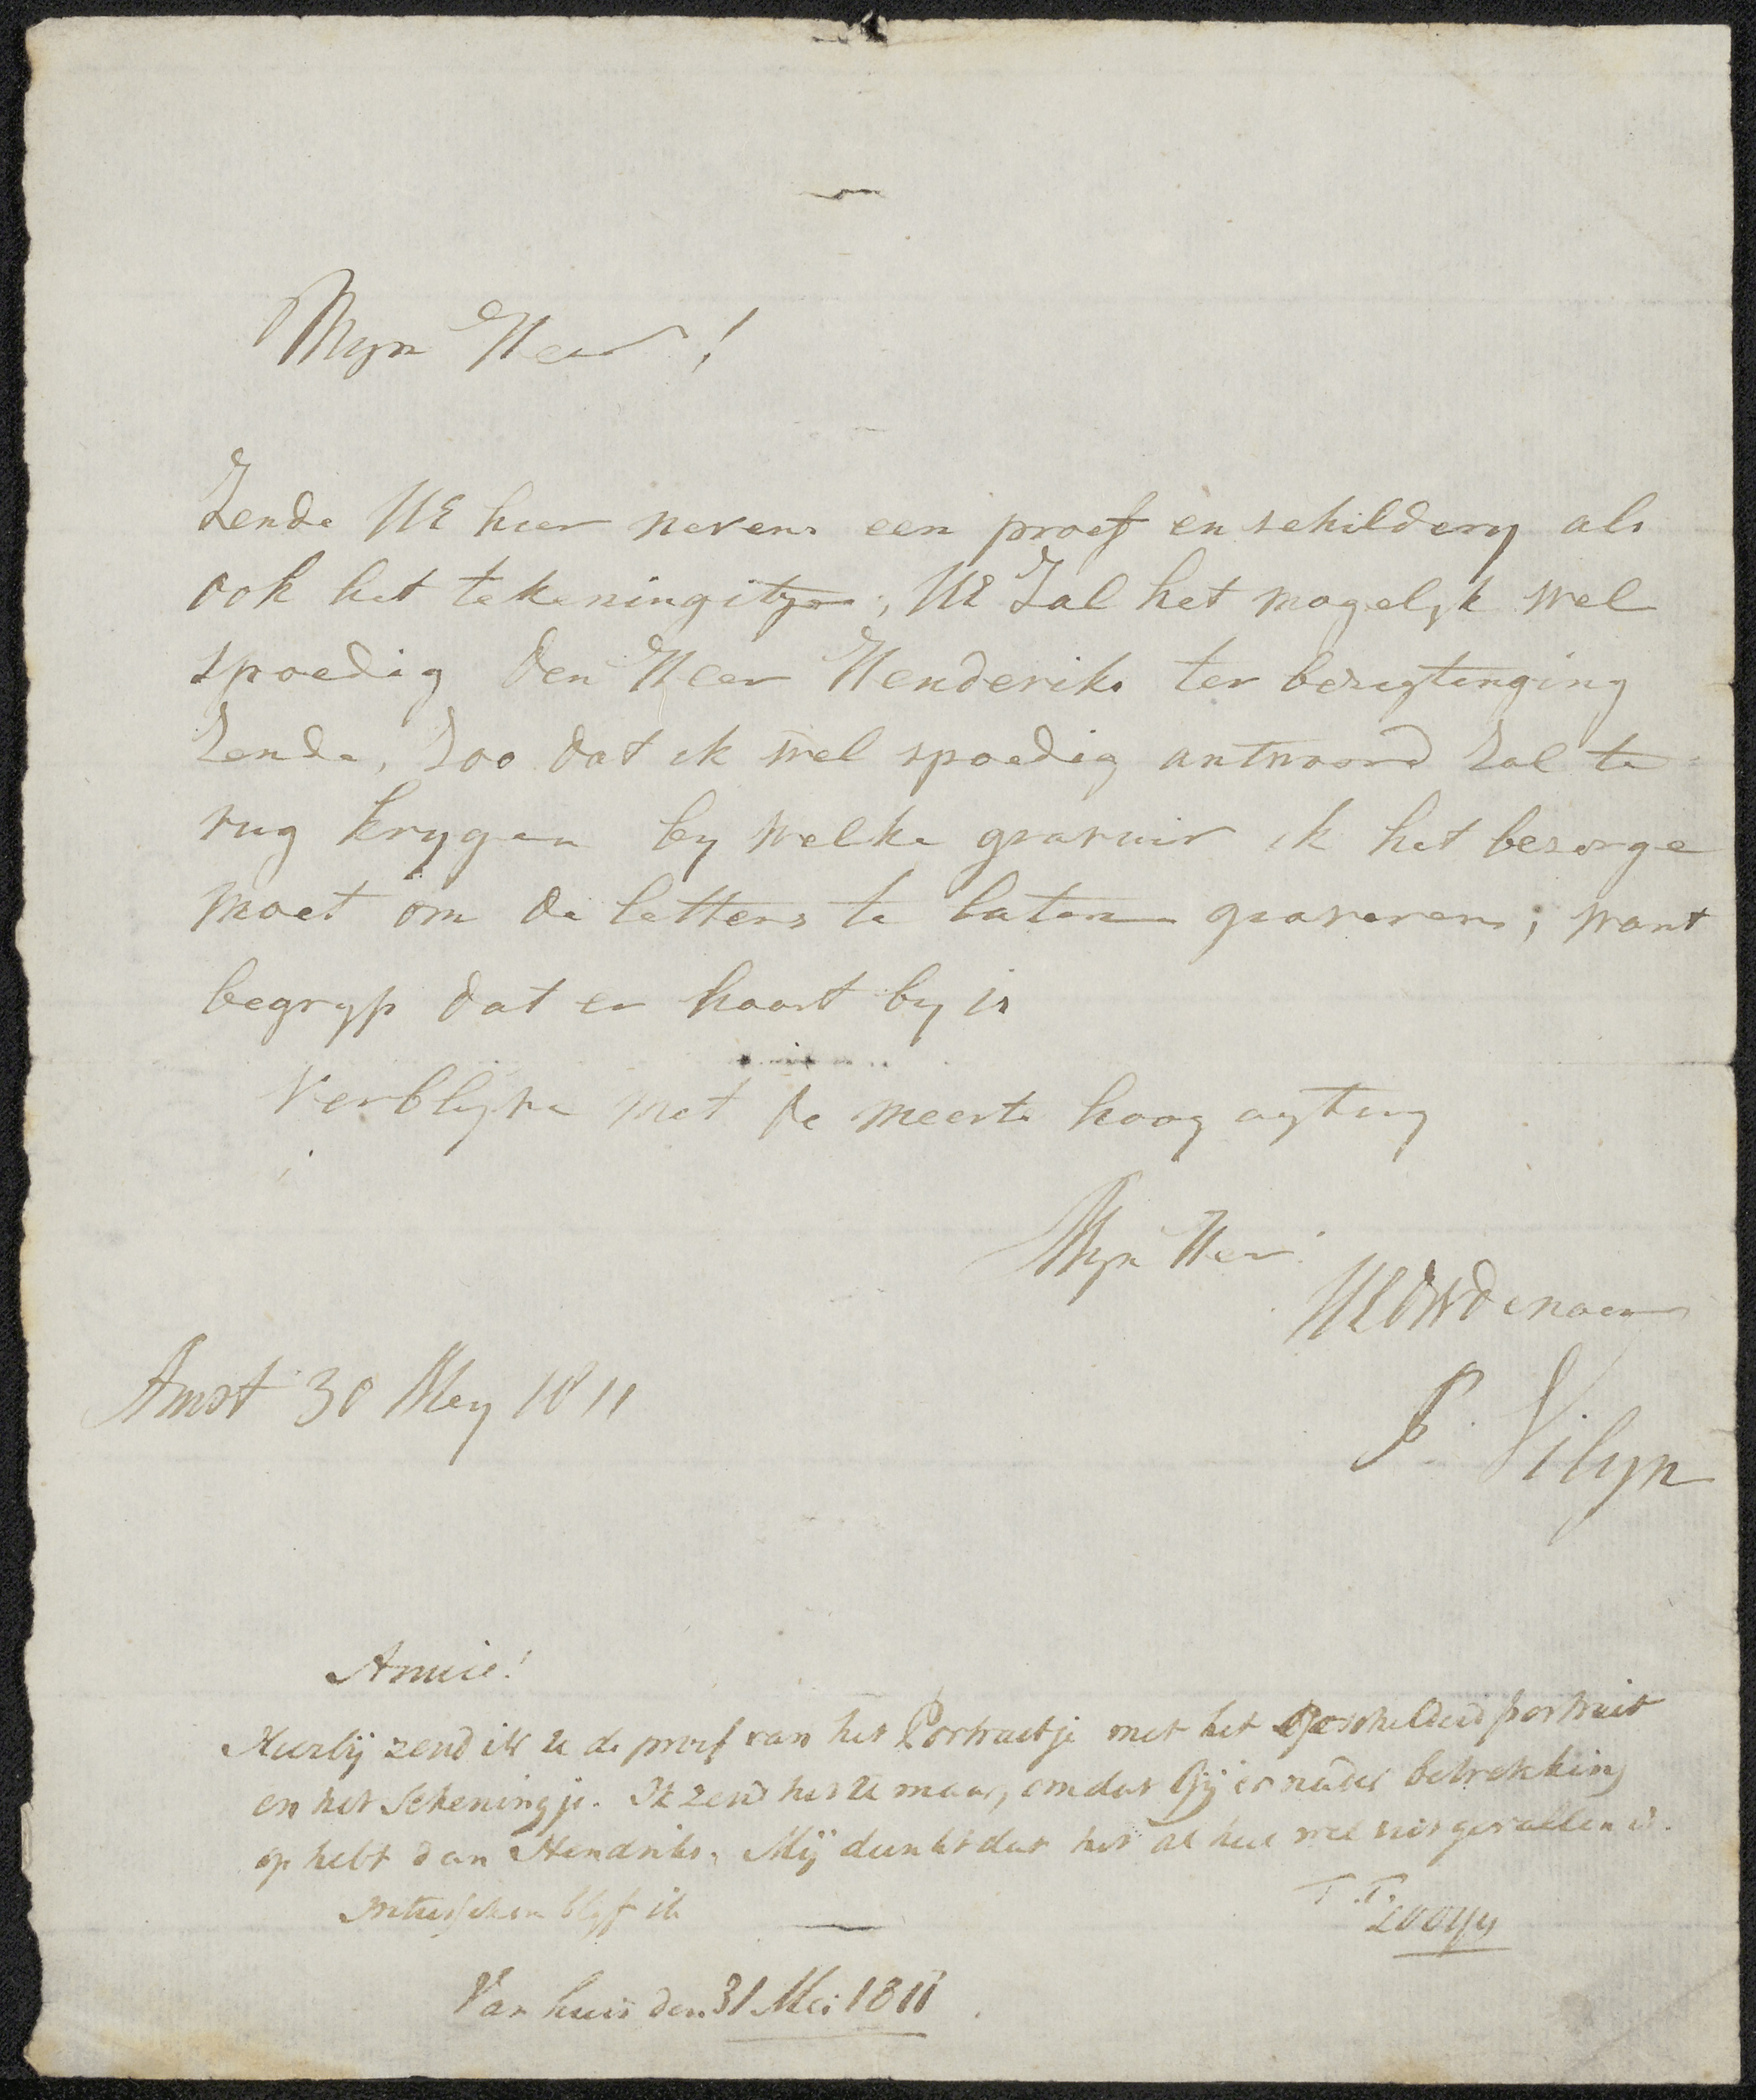 Myn Heer!
Zende UE hier nevens een proef en schildery als
ook het tekeningitje, UE Zal het mogelyk wel
spoedig den Heer Henderiks ter bezigtinging
Zende, Zoo dat ik wel spoedig antwoord Zal te
rug krygen by welke gravuir ik het bezorge
moet om de letters te laten graveren; want
begryp dat er haast by is
Verblyve met de meeste hoog agting
Myn Heer
UEDWDenaar
Amst 30 Mey 1811
P. Vilyn
Amice!
Hierbij zend ik U de proef van het Portraitje met het Geschilderd portrait
en het tekeningje. Ik zend het U maar, omdat Gij er nader betrekking
op hebt dan Hendriks. Mij dunkt dat het al heel wel uitgevallen is.
Intusschen blyf ik
T.T.
Looyy
Van huis den 31 Mei 1811